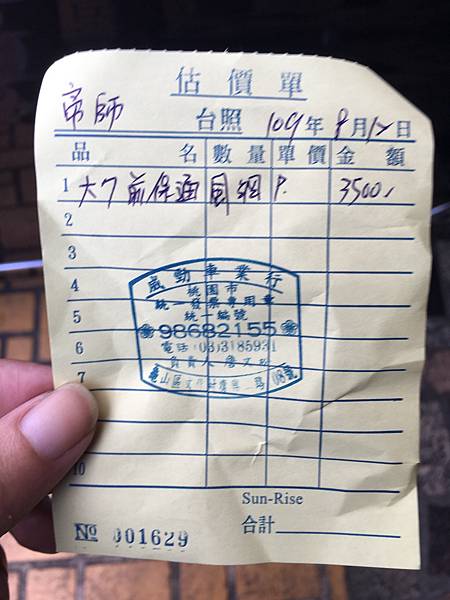 估價單
帝師
台照 109年8月12日
品名 數量 單價 金額
1 大7前保通風網 P. 3500.
2
3
4
5
6
7
10
威勁車業行
桃園市
統一發票專用章
統一編號
98682155
電話:(03)3185931
負責人
Sun-Rise
合計
№ 001629